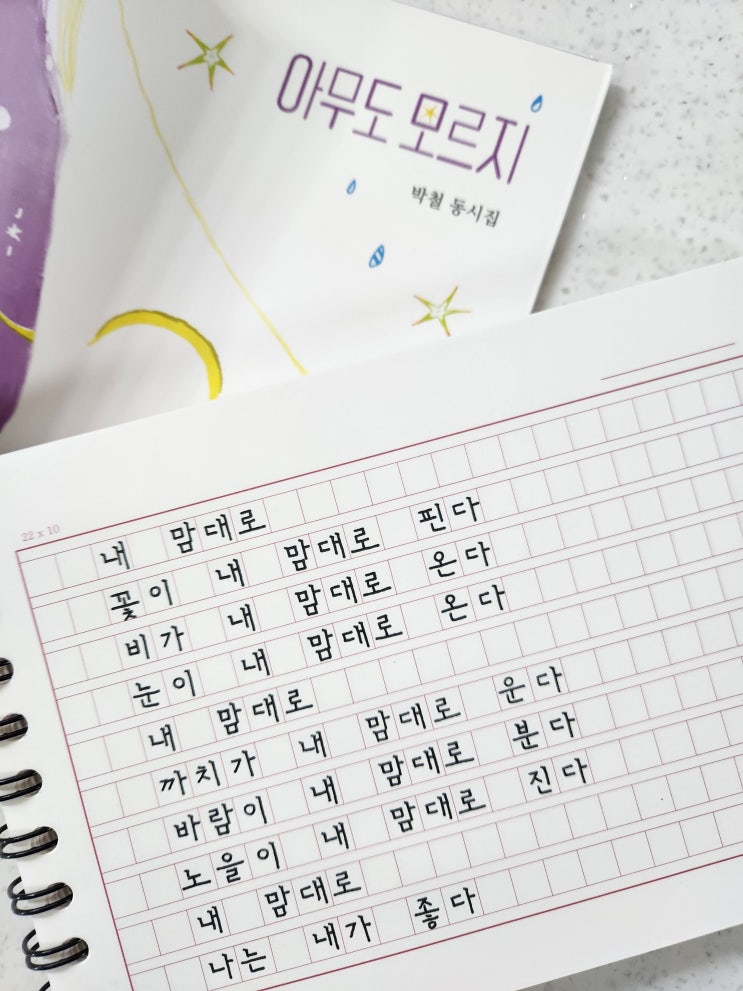 아무도 모르지
박철 동시집
22 x 10
내 맘대로
꽃이 내 맘대로 핀다
비가 내 맘대로 온다
눈이 내 맘대로 온다
내 맘대로
까치가 내 맘대로 운다
바람이 내 맘대로 분다
노을이 내 맘대로 진다
내 맘대로
나는 내가 좋다